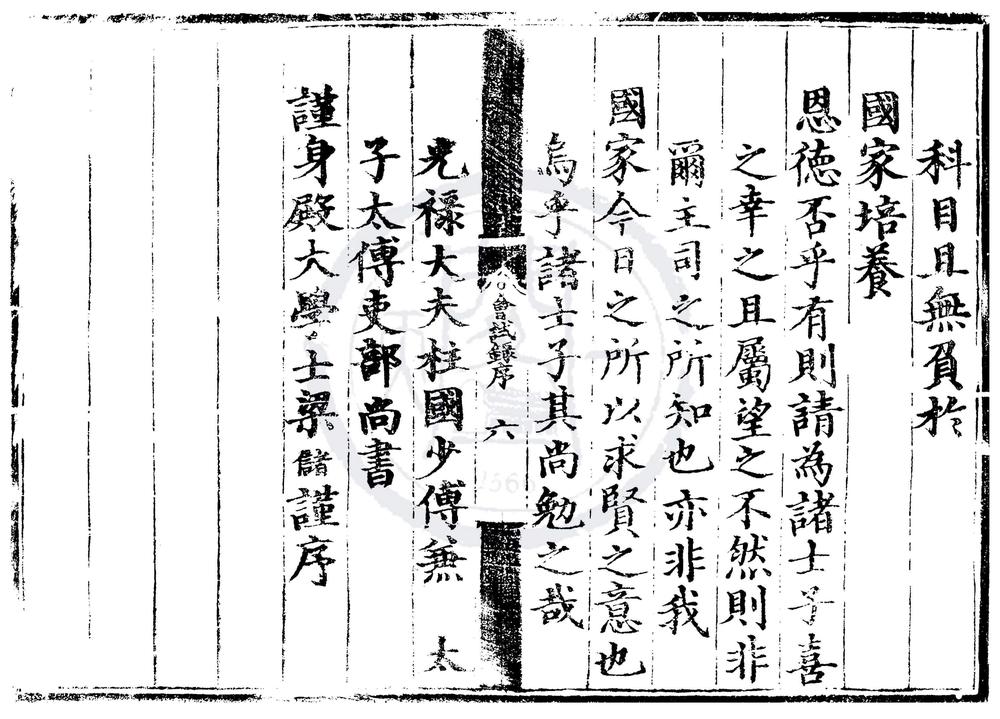 科目且無負於
國家培養
恩德否乎有則請為諸士子喜
之幸之且屬望之不然則非
爾主司之所知也亦非我
國家今日之所以求賢之意也
烏乎諸士子其尚勉之哉
會試錄序 六
光祿大夫柱國少傅兼 太
子太傅吏部尚書
謹身殿大學士梁儲謹序